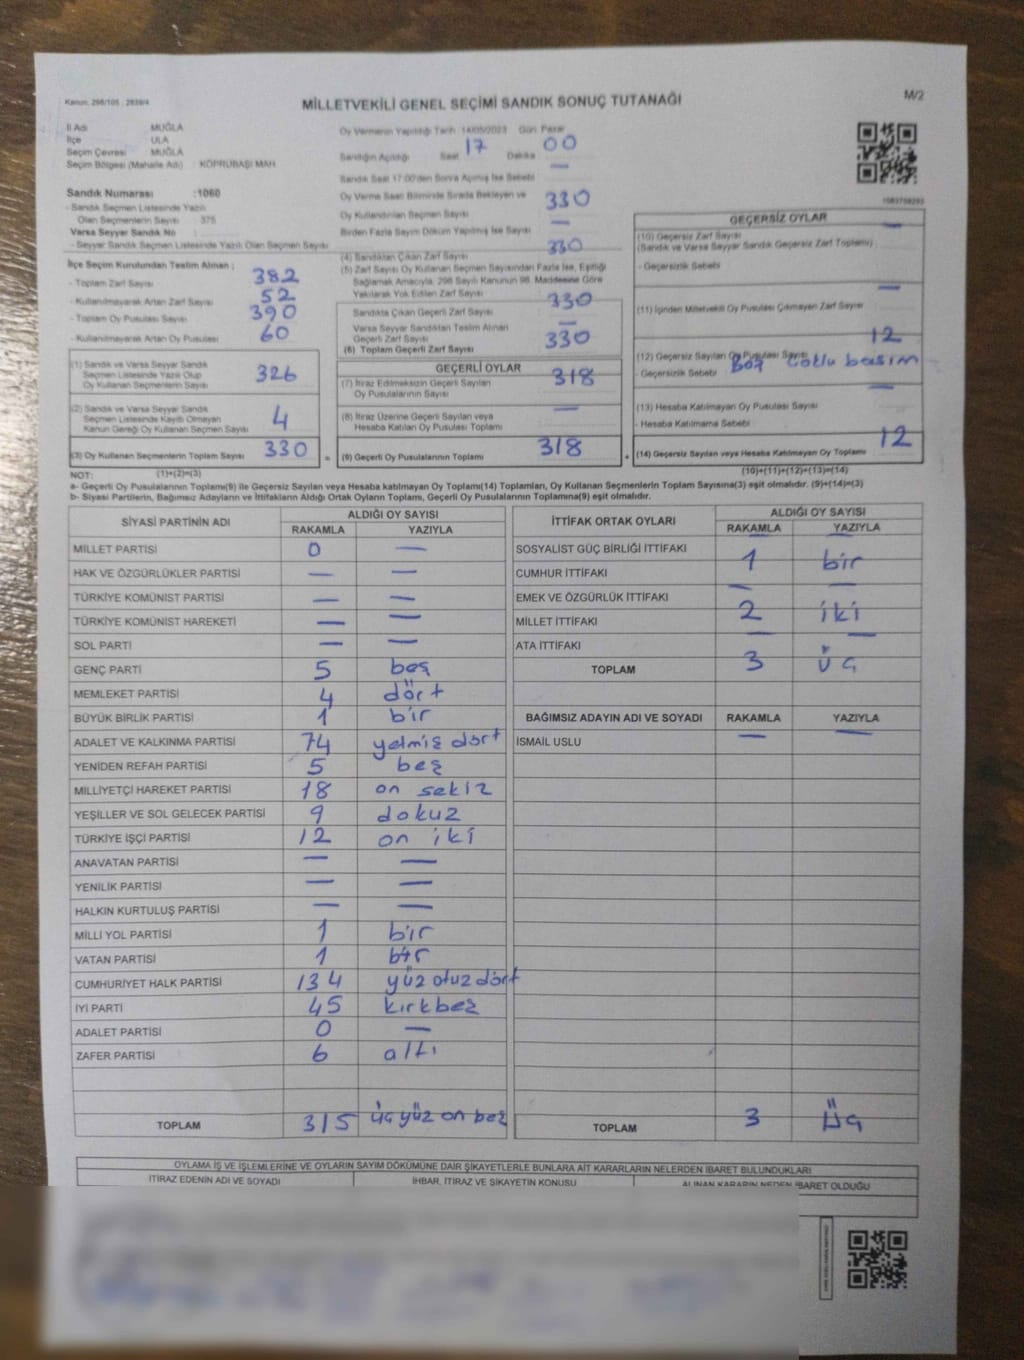 Kanun: 298/105 , 2839/4
MİLLETVEKİLİ GENEL SEÇİMİ SANDIK SONUÇ TUTANAĞI
M/2
İl Adı MUĞLA
İlçe ULA
Seçim Çevresi MUĞLA
Seçim Bölgesi (Mahalle Adı) : KÖPRÜBAŞI MAH.
Sandık Numarası :1060
- Sandık Seçmen Listesinde Yazılı
Olan Seçmenlerin Sayısı 375
Varsa Seyyar Sandık No
- Seyyar Sandık Seçmen Listesinde Yazılı Olan Seçmen Sayısı
İlçe Seçim Kurulundan Teslim Alınan ;
- Toplam Zarf Sayısı 382
- Kullanılmayarak Artan Zarf Sayısı 52
- Toplam Oy Pusulası Sayısı 390
- Kullanılmayarak Artan Oy Pusulası 60
(1) Sandık ve Varsa Seyyar Sandık
Seçmen Listesinde Yazılı Olup
Oy Kullanan Seçmenlerin Sayısı 326
(2) Sandık ve Varsa Seyyar Sandık
Seçmen Listesinde Kayıtlı Olmayan
Kanun Gereği Oy Kullanan Seçmen Sayısı 4
(3) Oy Kullanan Seçmenlerin Toplam Sayısı 330 =
Oy Vermenin Yapıldığı Tarih :14/05/2023 Gün Pazar
Sandığın Açıldığı Saat 17 Dakika 00
Sandık Saat 17:00'den Sonra Açılmış İse Sebebi —
Oy Verme Saati Bitiminde Sırada Bekleyen ve
Oy Kullandırılan Seçmen Sayısı 330
Birden Fazla Sayım Döküm Yapılmış İse Sayısı —
(4) Sandıktan Çıkan Zarf Sayısı 330
(5) Zarf Sayısı Oy Kullanan Seçmen Sayısından Fazla İse, Eşitliği
Sağlamak Amacıyla, 298 Sayılı Kanunun 98. Maddesine Göre
Yakılarak Yok Edilen Zarf Sayısı
Sandıkta Çıkan Geçerli Zarf Sayısı 330
Varsa Seyyar Sandıktan Teslim Alınan
Geçerli Zarf Sayısı —
(6) Toplam Geçerli Zarf Sayısı 330
GEÇERLİ OYLAR
(7) İtiraz Edilmeksizin Geçerli Sayılan
Oy Pusulalarının Sayısı 318
(8) İtiraz Üzerine Geçerli Sayılan veya
Hesaba Katılan Oy Pusulası Toplamı —
(9) Geçerli Oy Pusulalarının Toplamı 318 +
1583758293
GEÇERSİZ OYLAR
(10) Geçersiz Zarf Sayısı —
(Sandık ve Varsa Seyyar Sandık Geçersiz Zarf Toplamı)
- Geçersizlik Sebebi
(11) İçinden Milletvekili Oy Pusulası Çıkmayan Zarf Sayısı —
(12) Geçersiz Sayılan Oy Pusulası Sayısı 12
- Geçersizlik Sebebi Boş çoklu basım
(13) Hesaba Katılmayan Oy Pusulası Sayısı —
- Hesaba Katılmama Sebebi
(14) Geçersiz Sayılan veya Hesaba Katılmayan Oy Toplamı 12
NOT: (1)+(2)=(3) (10)+(11)+(12)+(13)=(14)
a- Geçerli Oy Pusulalarının Toplamı(9) ile Geçersiz Sayılan veya Hesaba katılmayan Oy Toplamı(14) Toplamları, Oy Kullanan Seçmenlerin Toplam Sayısına(3) eşit olmalıdır. (9)+(14)=(3)
b- Siyasi Partilerin, Bağımsız Adayların ve İttifakların Aldığı Ortak Oyların Toplamı, Geçerli Oy Pusulalarının Toplamına(9) eşit olmalıdır.
SİYASİ PARTİNİN ADI ALDIĞI OY SAYISI
RAKAMLA YAZIYLA
MİLLET PARTİSİ 0 —
HAK VE ÖZGÜRLÜKLER PARTİSİ — —
TÜRKİYE KOMÜNİST PARTİSİ — —
TÜRKİYE KOMÜNİST HAREKETİ — —
SOL PARTİ — —
GENÇ PARTİ 5 beş
MEMLEKET PARTİSİ 4 dört
BÜYÜK BİRLİK PARTİSİ 1 bir
ADALET VE KALKINMA PARTİSİ 74 yetmiş dört
YENİDEN REFAH PARTİSİ 5 beş
MİLLİYETÇİ HAREKET PARTİSİ 18 on sekiz
YEŞİLLER VE SOL GELECEK PARTİSİ 9 dokuz
TÜRKİYE İŞÇİ PARTİSİ 12 on iki
ANAVATAN PARTİSİ — —
YENİLİK PARTİSİ — —
HALKIN KURTULUŞ PARTİSİ — —
MİLLİ YOL PARTİSİ 1 bir
VATAN PARTİSİ 1 bir
CUMHURİYET HALK PARTİSİ 134 yüz otuz dört
İYİ PARTİ 45 kırkbeş
ADALET PARTİSİ 0 —
ZAFER PARTİSİ 6 altı
TOPLAM 315 üç yüz on beş
İTTİFAK ORTAK OYLARI ALDIĞI OY SAYISI
RAKAMLA YAZIYLA
SOSYALİST GÜÇ BİRLİĞİ İTTİFAKI — —
CUMHUR İTTİFAKI 1 bir
EMEK VE ÖZGÜRLÜK İTTİFAKI — —
MİLLET İTTİFAKI 2 iki
ATA İTTİFAKI — —
TOPLAM 3 üç
BAĞIMSIZ ADAYIN ADI VE SOYADI RAKAMLA YAZIYLA
İSMAİL USLU — —
TOPLAM 3 üç
OYLAMA İŞ VE İŞLEMLERİNE VE OYLARIN SAYIM DÖKÜMÜNE DAİR ŞİKAYETLERLE BUNLARA AİT KARARLARIN NELERDEN İBARET BULUNDUKLARI
İTİRAZ EDENİN ADI VE SOYADI İHBAR, İTİRAZ VE ŞİKAYETİN KONUSU ALINAN KARARIN NEDEN İBARET OLDUĞU